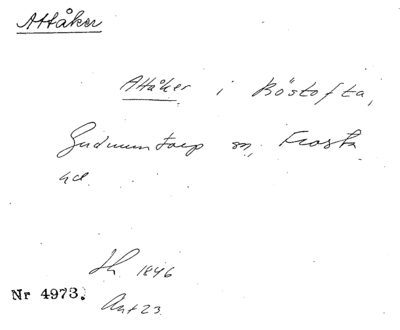 Attåker
Attåker i Böstofta,
Gudmuntorp sn, Frosta
hd.
Lh. 1846
Nr 4973.
Akt 23.